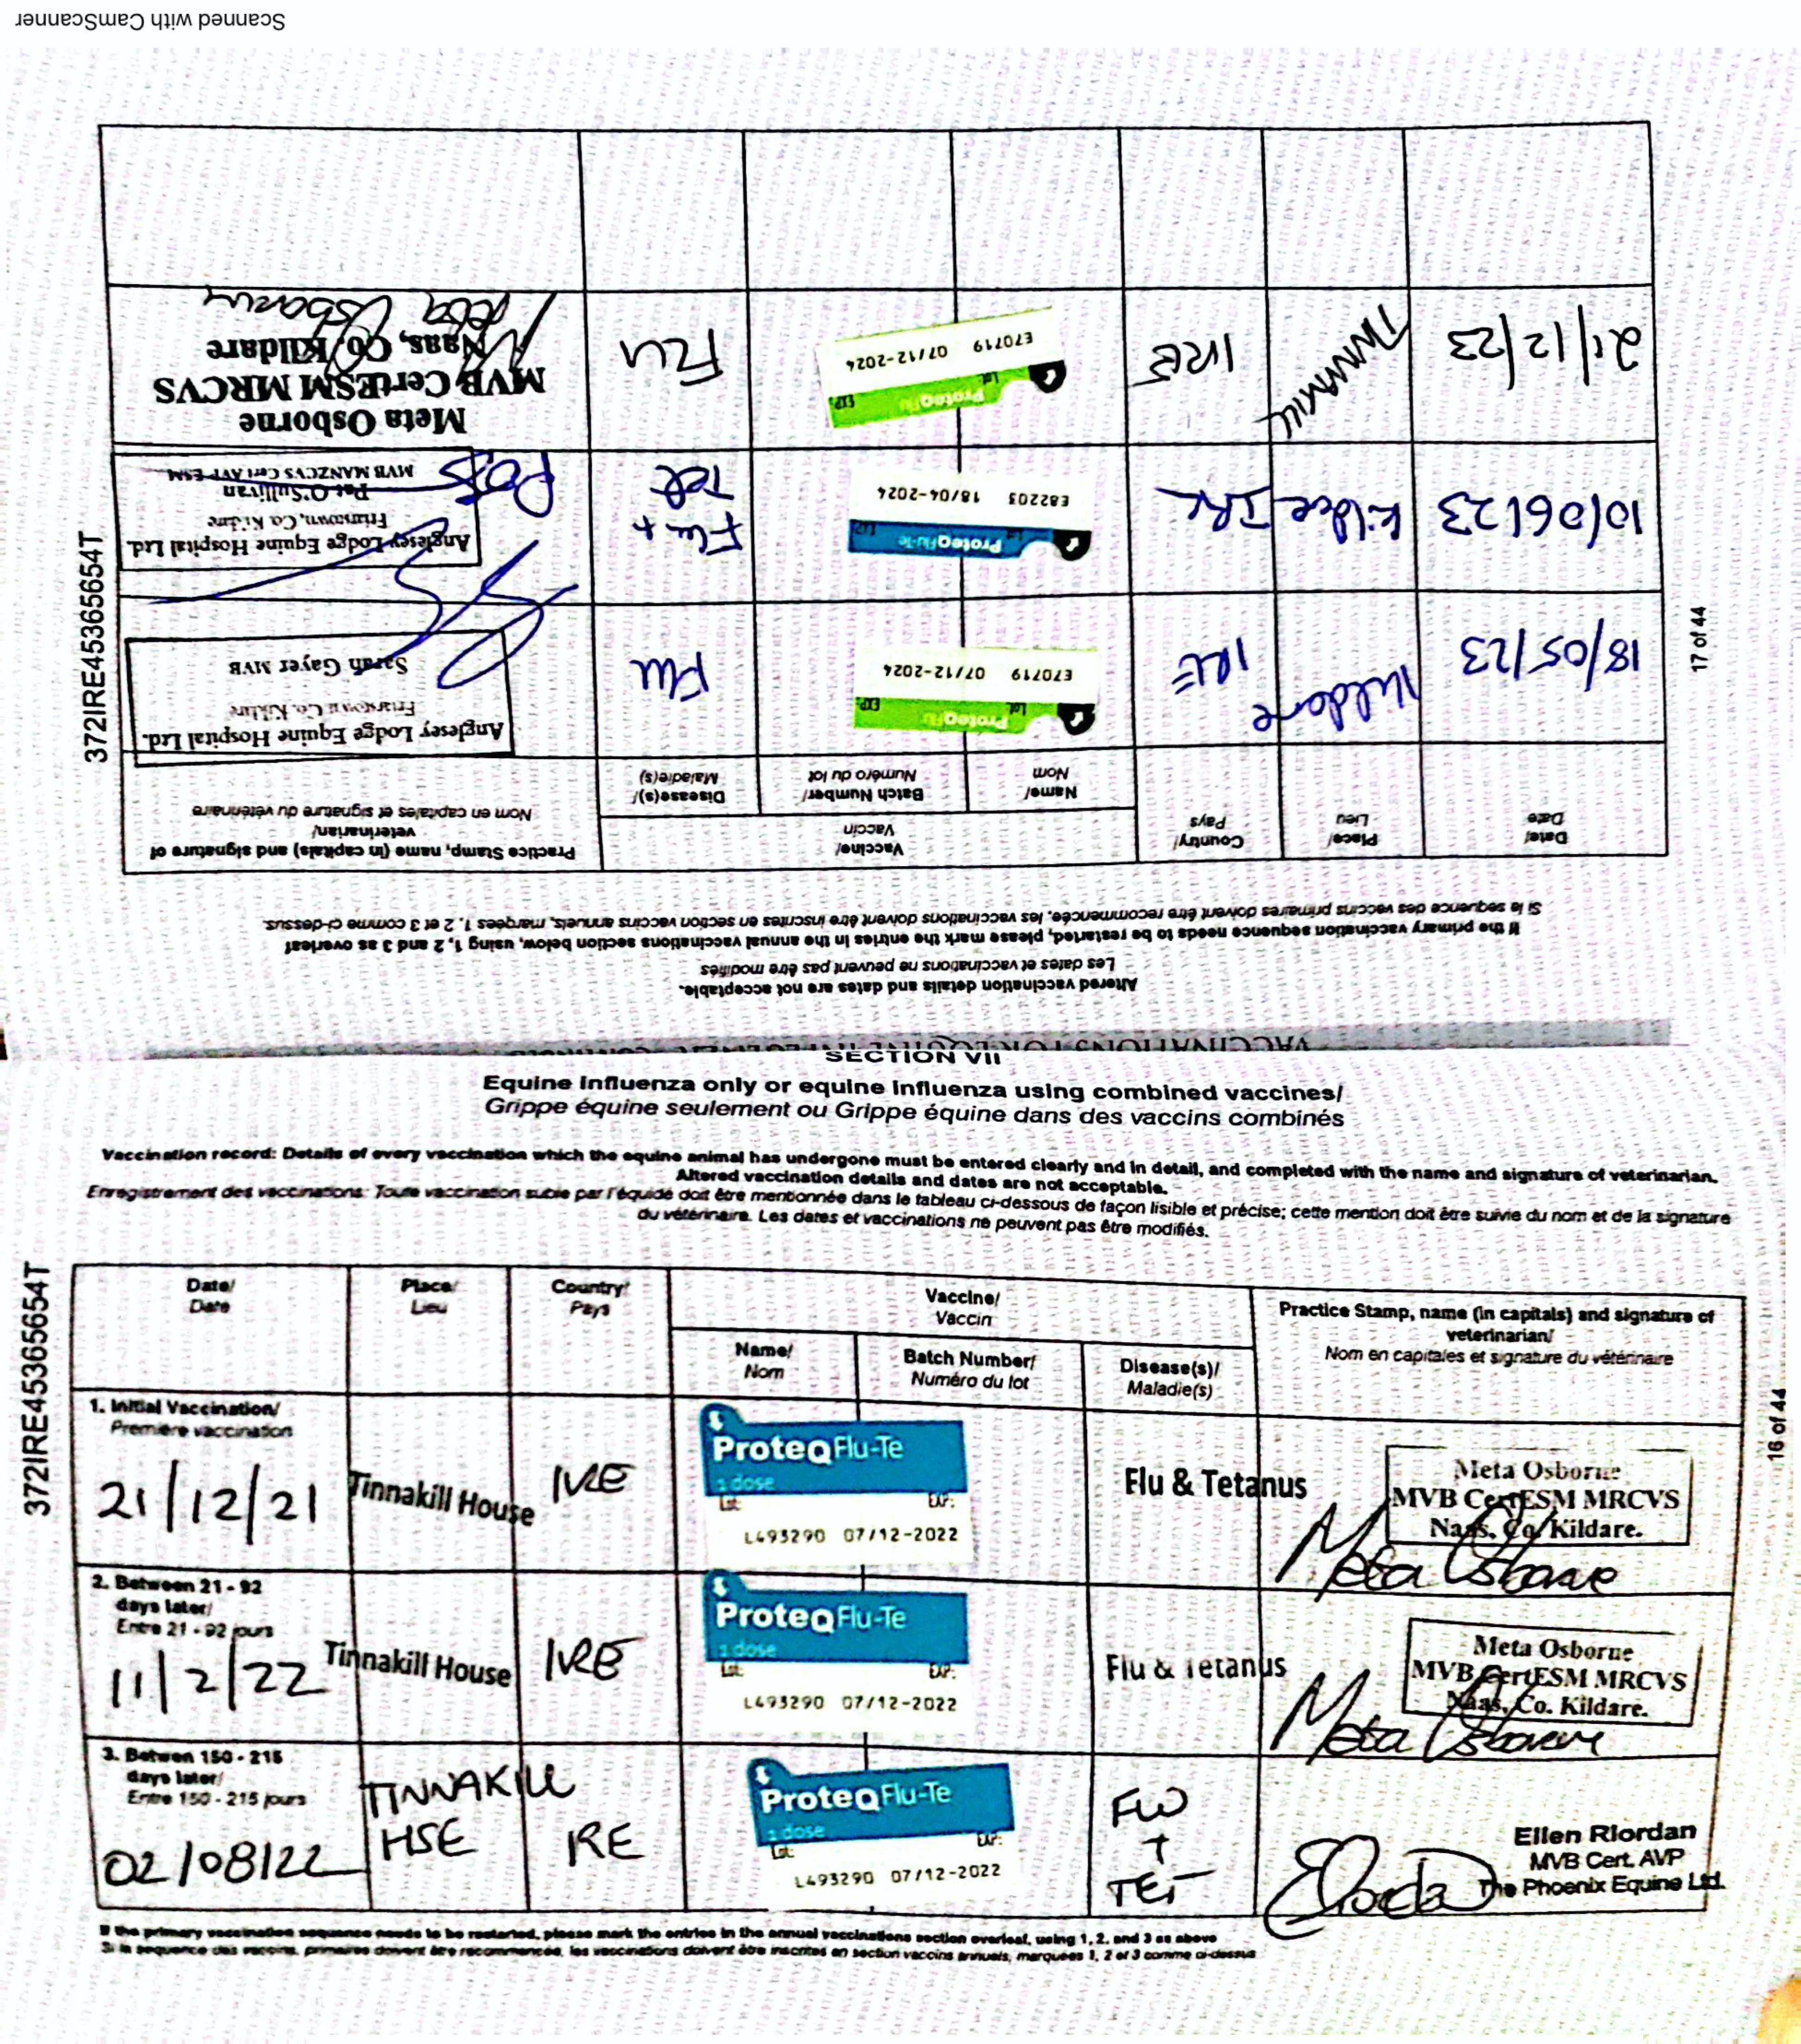 Scanned with CamScanner
SECTION VII
Equine influenza only or equine influenza using combined vaccines/
Grippe équine seulement ou Grippe équine dans des vaccins combinés
Vaccination record: Details of every vaccination which the equine animal has undergone must be entered clearly and in detail, and completed with the name and signature of veterinarian.
Altered vaccination details and dates are not acceptable.
Enregistrement des vaccinations: Toute vaccination subie par l'équidé doit être mentionnée dans le tableau ci-dessous de façon lisible et précise; cette mention doit être suivie du nom et de la signature
du vétérinaire. Les dates et vaccinations ne peuvent pas être modifiés.
372IRE45365654T
16 of 44
Date/
Date
Place/
Lieu
Country/
Pays
Vaccine/
Vaccin
Name/
Nom
Batch Number/
Numéro du lot
Disease(s)/
Maladie(s)
Practice Stamp, name (in capitals) and signature of
veterinarian/
Nom en capitales et signature du vétérinaire
1. Initial Vaccination/
Première vaccination
21/12/21
Tinnakill House
IRE
ProteqFlu-Te
1 dose
Lot: EXP:
L493290 07/12-2022
Flu & Tetanus
Meta Osborne
MVB CertESM MRCVS
Naas, Co. Kildare.
Meta Osborne
2. Between 21 - 92
days later/
Entre 21 - 92 jours
11/2/22
Tinnakill House
IRE
ProteqFlu-Te
1 dose
Lot: EXP:
L493290 07/12-2022
Flu & Tetanus
Meta Osborne
MVB CertESM MRCVS
Naas, Co. Kildare.
Meta Osborne
3. Betwen 150 - 215
days later/
Entre 150 - 215 jours
02/08/22
TINNAKILL
HSE
IRE
ProteqFlu-Te
1 dose
Lot: EXP:
L493290 07/12-2022
FLU
+
TET
Ellen Riordan
MVB Cert. AVP
The Phoenix Equine Ltd.
If the primary vaccination sequence needs to be restarted, please mark the entries in the annual vaccinations section overleaf, using 1, 2, and 3 as above
Si la sequence des vaccins, primaires doivent être recommencée, les vaccinations doivent être inscrites en section vaccins annuels, marquées 1, 2 et 3 comme ci-dessus
Altered vaccination details and dates are not acceptable.
Les dates et vaccinations ne peuvent pas être modifiés
If the primary vaccination sequence needs to be restarted, please mark the entries in the annual vaccinations section below, using 1, 2 and 3 as overleaf
Si la sequence des vaccins primaires doivent être recommencée, les vaccinations doivent être inscrites en section vaccins annuels, marqées 1, 2 et 3 comme ci-dessus.
372IRE45365654T
17 of 44
Date/
Date
Place/
Lieu
Country/
Pays
Vaccine/
Vaccin
Name/
Nom
Batch Number/
Numéro du lot
Disease(s)/
Maladie(s)
Practice Stamp, name (in capitals) and signature of
veterinarian/
Nom en capitales et signature du vétérinaire
18/05/23
Kildare
IRE
ProteqFlu
Lot: EXP:
E70719 07/12-2024
Flu
Anglesey Lodge Equine Hospital Ltd.
Friarstown Co. Kildare
Sarah Gayer MVB
10/06/23
Kildare
IRE
ProteqFlu-Te
E82203 18/04-2024
Flu +
Tet
Anglesey Lodge Equine Hospital Ltd.
Friarstown, Co. Kildare
Pat O'Sullivan
MVB MANZCVS Cert AVP-ESM
POS
21/12/23
TINNAKILL
IRE
ProteqFlu
Lot: EXP:
E70719 07/12-2024
FLU
Meta Osborne
MVB CertESM MRCVS
Naas, Co. Kildare
Meta Osborne